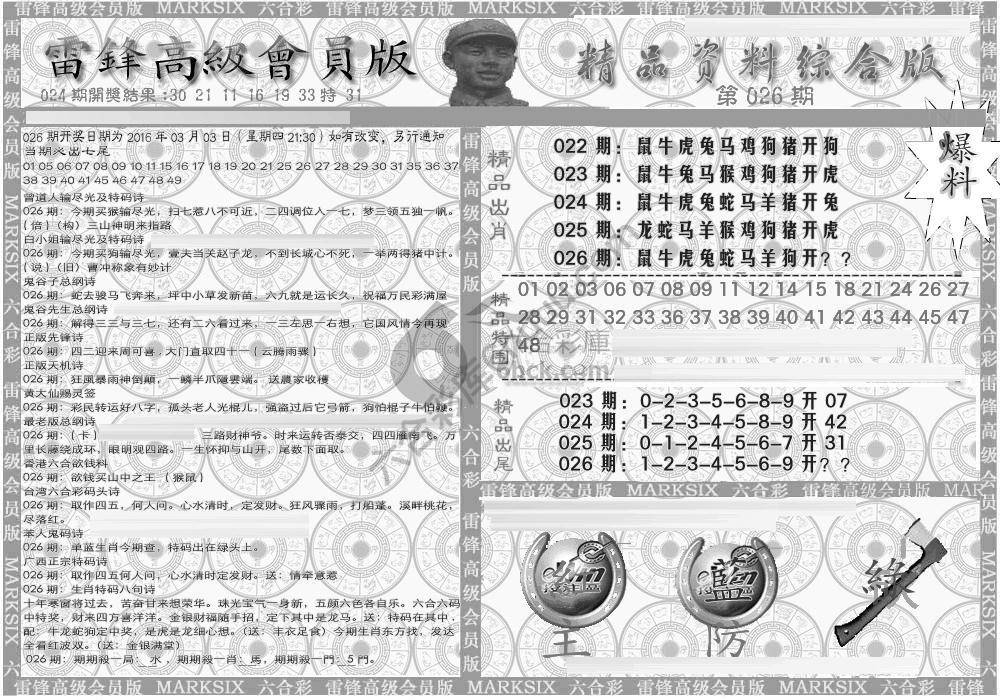 雷锋高级会员版 MARKSIX 六合彩 雷锋高级会员版 MARKSIX 六合彩 雷锋高级会员版 MARKSIX 六合彩 雷锋高级会员版
雷鋒高級會員版
精品资料综合版
024期開獎結果:30 21 11 16 19 33 特 31
第 026 期
026 期开奖日期为 2016 年 03 月 03 日（星期四 21:30）如有改变，另行通知
当期必出七尾
01 05 06 07 08 09 10 11 15 16 17 18 19 20 21 25 26 27 28 29 30 31 35 36 37
38 39 40 41 45 46 47 48 49
曾道人输尽光及特码诗
026 期：今期买猴输尽光，扫七惹八不可近，二四调位人一七，梦三领五独一帆。
{倍}（构）三山神明来指路
白小姐输尽光及特码诗
026 期：今期买狗输尽光，壹夫当关赵子龙，不到长城心不死，一举两得猪中计。
{说}（旧）曹冲称象有妙计
鬼谷子总纲诗
026 期：蛇去骏马飞奔来，坪中小草发新苗，六九就是运长久，祝福万民彩满屋
鬼谷先生总纲诗
026 期：解得三三与三七，还有二六看过来，一三左思一右想，它国风情今再现
正版先锋诗
026 期：四二迎来周可喜，大门直取四十一{云腾雨骤}
正版天机诗
026 期：狂風暴雨神倒顛，一鳞半爪隱雲端。送農家收穫
黄大仙赐灵签
026 期：彩民转运好八字，孤头老人光棍儿，强盗过后它弓箭，狗怕棍子牛怕鞭。
最老版总纲诗
026 期：{卡} 三路财神爷。时来运转否泰交，四四雁南飞。万
里长藤绕成环，眼明观四路。一生怀抑与山开，尾数下面取。
香港六合欲钱料
026 期：欲钱买山中之王 {猴鼠}
台湾六合彩码头诗
026 期：取作四五，何人问。心水清时，定发财。狂风骤雨，打船蓬。溪畔桃花，
尽落红。
笨人鬼码诗
026 期：单蓝生肖今期查，特码出在绿头上。
广西正宗特码诗
026 期：取作四五何人问，心水清时定发财。送：情牵意惹
026 期：生肖特码八句诗
十年寒窗将过去，苦奋甘来想荣华。珠光宝气一身新，五颜六色各自乐。六合六码
中特奖，财来四方喜洋洋。金银财福随手招，定下其中是龙马。送：特码在其中，
配：牛龙蛇狗定中奖，是虎是龙细心想。（送：丰衣足食）今期生肖东方找，发达
全看红波双。（送：金银满堂）
026 期：期期殺一局：水，期期殺一肖：馬，期期殺一門：5 門。
精品出肖
022 期：鼠牛虎兔马鸡狗猪开狗
023 期：鼠牛兔马猴鸡狗猪开虎
024 期：鼠牛虎兔蛇马羊猪开兔
025 期：龙蛇马羊猴鸡狗猪开虎
026 期：鼠牛虎兔蛇马羊狗开？？
爆料
精品特围
01 02 03 06 07 08 09 11 12 14 15 18 21 24 26 27
28 29 31 32 33 34 36 37 38 39 40 41 42 43 44 45 47
48
精品出尾
023 期：0-2-3-5-6-8-9 开 07
024 期：1-2-3-4-5-8-9 开 42
025 期：0-1-2-4-5-6-7 开 31
026 期：1-2-3-4-5-6-9 开？？
雷锋高级会员版 MARKSIX 六合彩 雷锋高级会员版
藍
綠
主
防
雷锋高级会员版 MARKSIX 六合彩 雷锋高级会员版 MARKSIX 六合彩 雷锋高级会员版 MARKSIX 六合彩 雷锋高级会员版